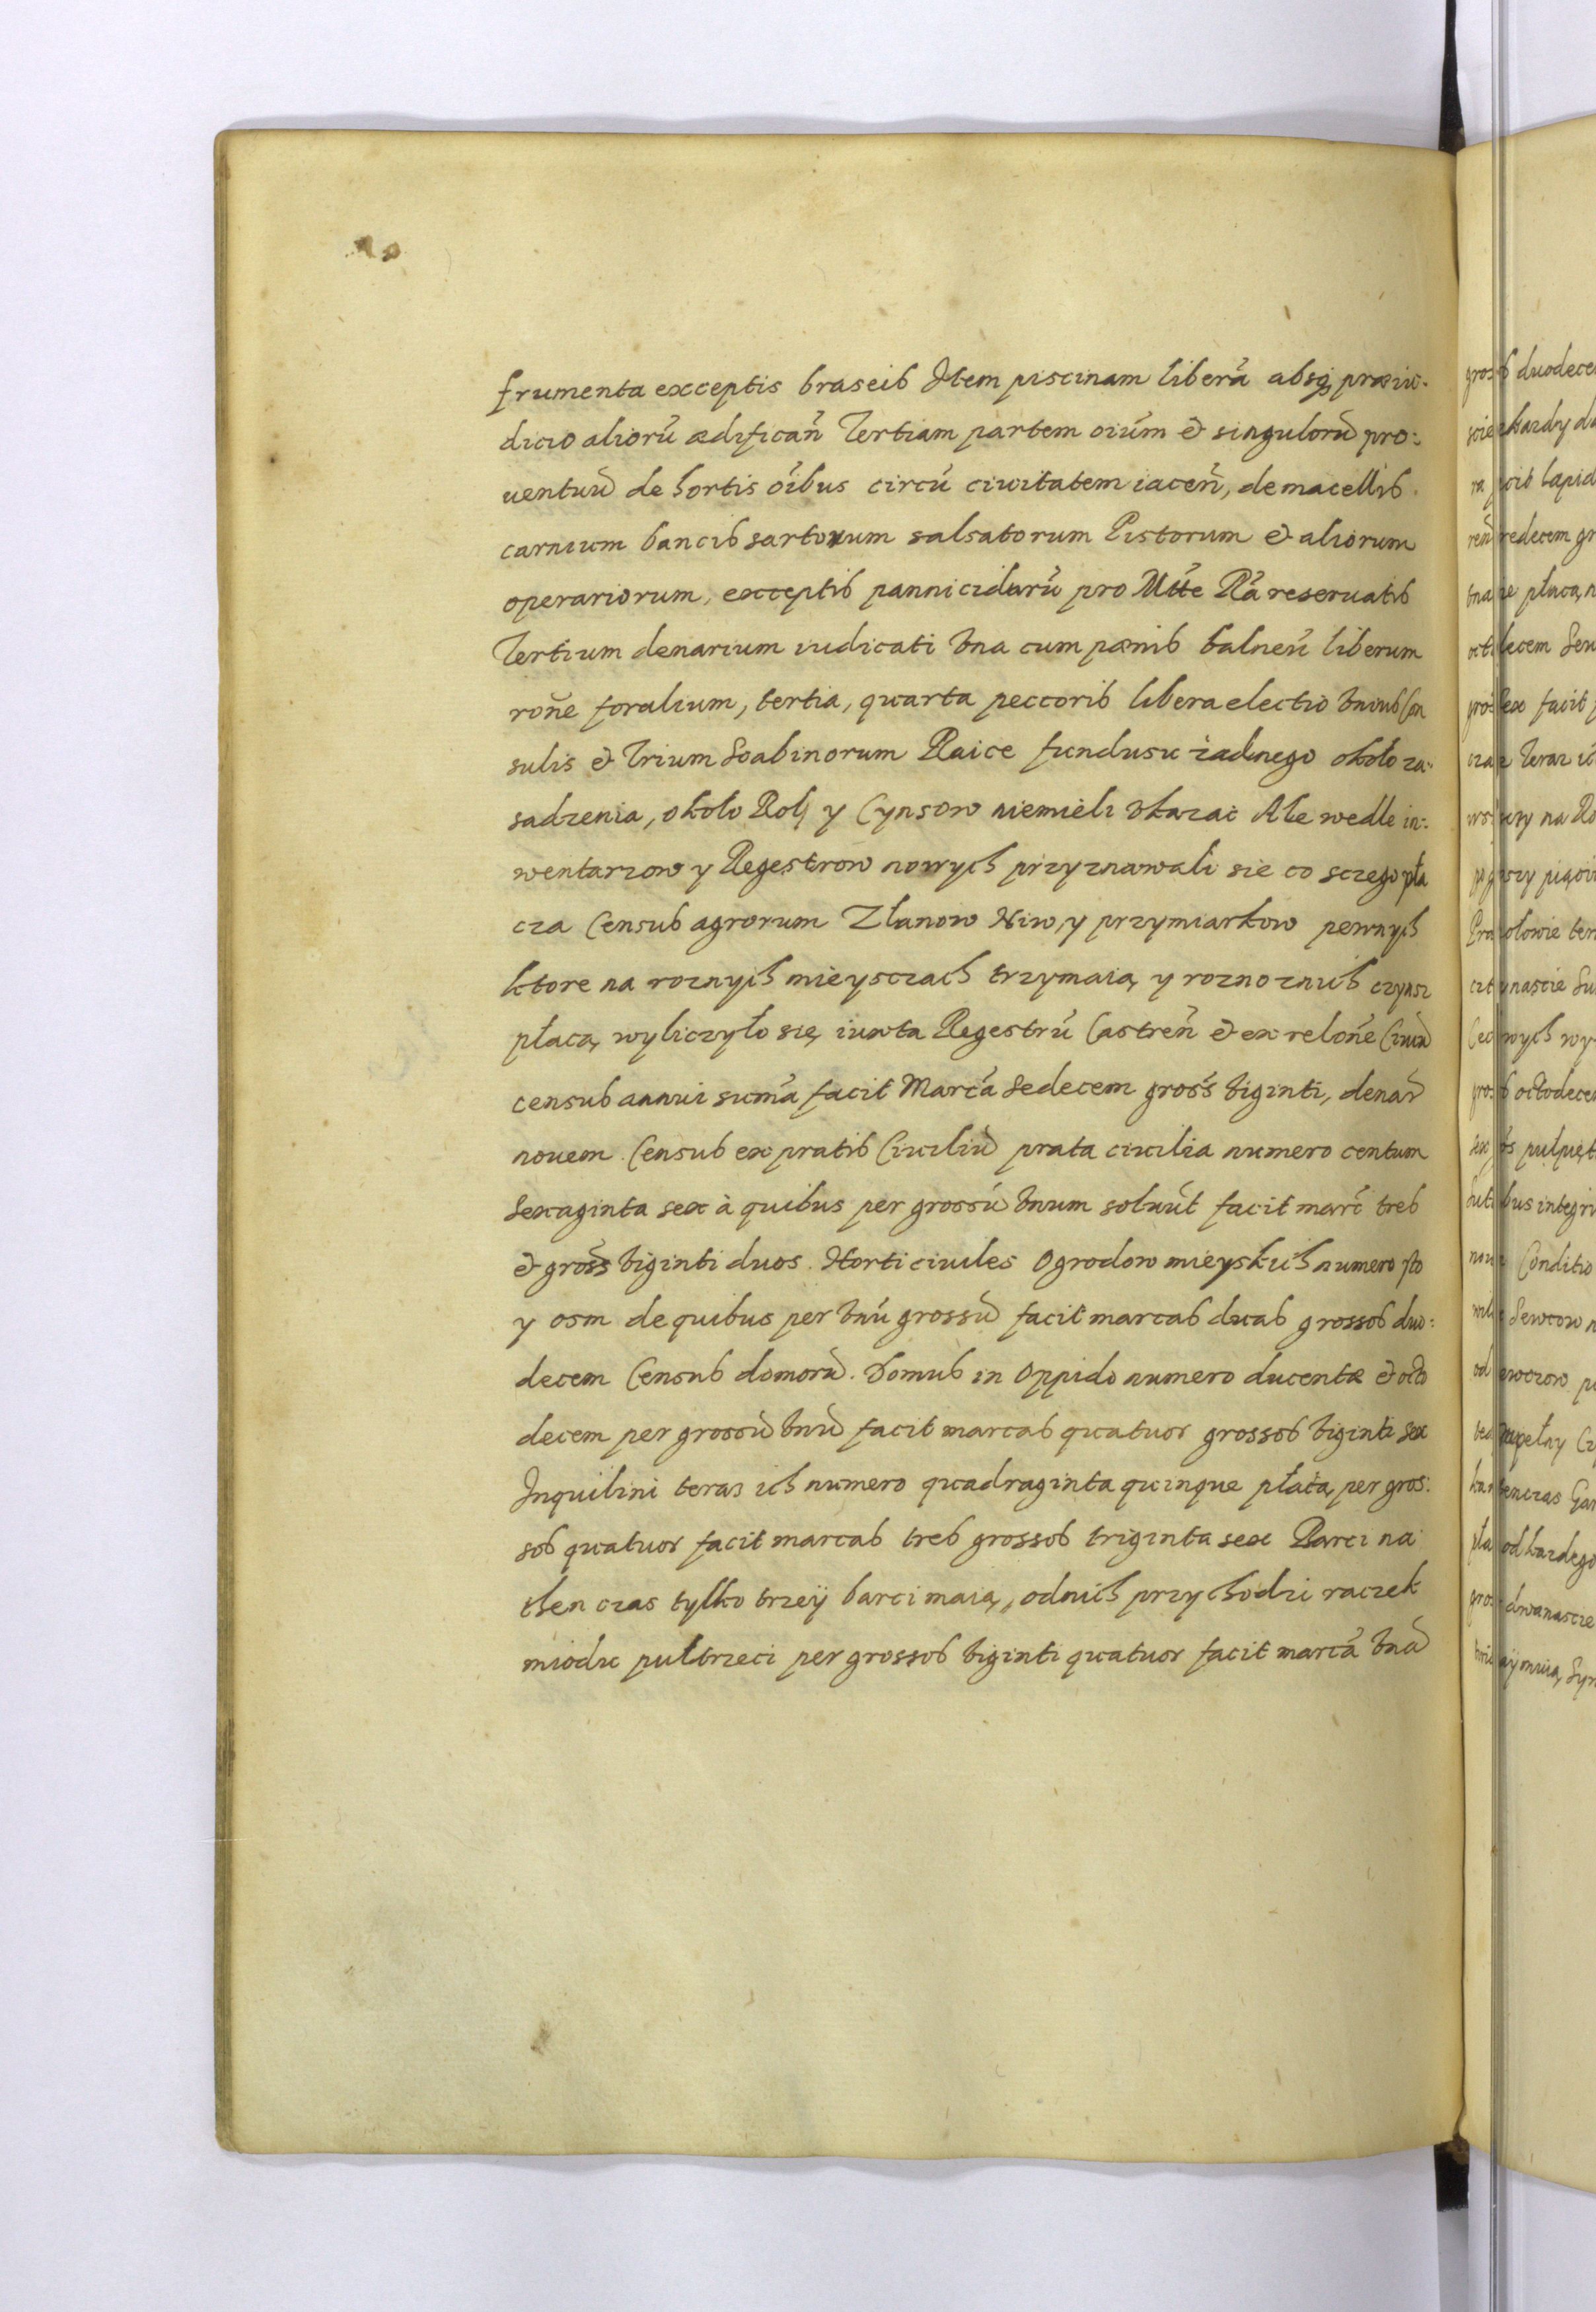 frumenta exceptis braseis Item piscinam liberā absq, præiu-
dicio aliorū ædifican̄ Tertiam partem oiūm & singulorū pro:
uentuū de hortis oībus circū ciuitatem iacen̄, de macellis
carnium bancis sartorum salsatorum Pistorum & aliorum
operariorum, exceptis pannicidarū pro Mtte Rā reseruatis
Tertium denarium iudicati vna cum pænis balneū liberum
rōne foralium, tertia, quarta peccoris libera electio vnius Con
sulis & Trium Scabinorum Raice fundusu żadnego około za-
sadzenia, około Rolj y Cynsow niemieli vkazać Ale wedle in:
wentarzow y Regestrow nowych przyznawali sie co sczego pła
cza Census agrorum Złanow Niw, y przymiarkow pewnych
ktore na roznych mieysczach trzymaią, y rozno znich czynsz
płacą, wyliczyło się, iuxta Regestrū Castren̄ & ex relōne Ciuiū
census annui sumā facit Marcā Sedecem gross̄ viginti, denar̄
nouem. Census ex pratis Ciuiliū prata ciuilia numero centum
Sexaginta sex à quibus per grossū vnum soluūt facit marc̄ tres
& gross̄ viginti duos. Horti ciuiles Ogrodow mieyskich numero sto
y osm de quibus per vnū grossū facit marcas duas grossos duo:
decem Census domorū. Domus in Oppido numero ducentæ & octo
decem per grossū vnū facit marcas quatuor grossos viginti sex
Inquilini teras ich numero quadraginta quinque płacą, per gros:
sos quatuor facit marcas tres grossos triginta sex Barci na
then czas tylko trzeÿ barci maią, odnich przychodzi raczek
miodu pultrzeci per grossos viginti quatuor facit marcā vnā